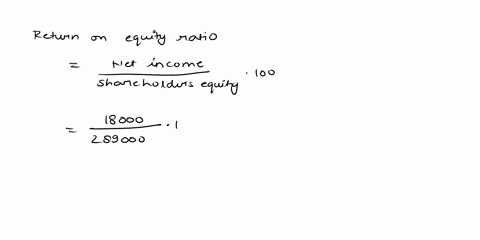 Return on equity ratio
= Net income / shareholders equity · 100
= 18000 / 289000 · 1